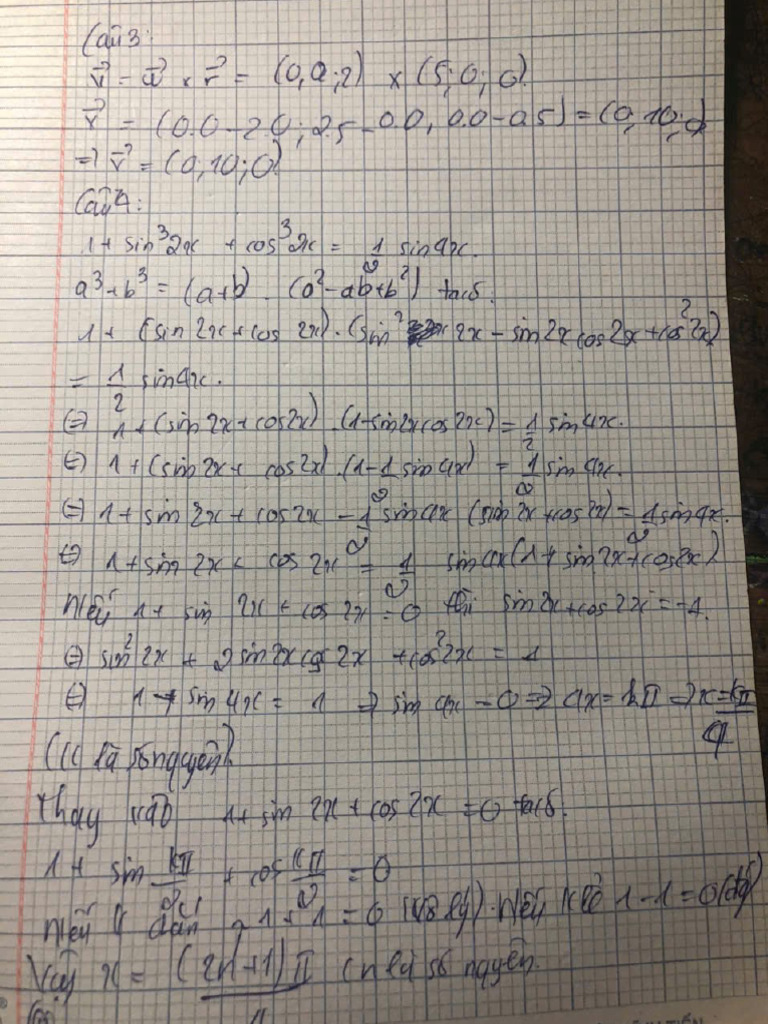 Câu 3:
v⃗ = w⃗ × r⃗ = (0,0;2) × (5;0;0)
v⃗ = (0.0 - 2.0; 2.5 - 0.0, 0.0 - 0.5) = (0,10;0)
=> v⃗ = (0,10;0)
Câu 4:
1 + sin³2x + cos³2x = 1/2 sin4x.
a³ + b³ = (a+b) . (a² - ab + b²) ta có.
1 + (sin 2x + cos 2x) . (sin² 2x - sin2x cos2x + cos²2x)
= 1/2 sin4x.
⇔ 1 + (sin 2x + cos2x) . (1 - sin2x cos2x) = 1/2 sin4x.
⇔ 1 + (sin 2x + cos2x) . (1 - 1/2 sin4x) = 1/2 sin4x.
⇔ 1 + sin 2x + cos2x - 1/2 sin4x (sin2x + cos2x) = 1/2 sin4x.
⇔ 1 + sin 2x + cos 2x = 1/2 sin4x (1 + sin2x + cos2x)
Nếu 1 + sin 2x + cos 2x = 0 thì sin2x + cos2x = -1.
⇔ sin²2x + 2sin2x cos2x + cos²2x = 1
⇔ 1 + sin 4x = 1 => sin 4x = 0 => 4x = kπ => x = kπ/4
(k là số nguyên)
thay vào 1 + sin 2x + cos 2x = 0 ta có.
1 + sin kπ/2 + cos kπ/2 = 0
Nếu k 1 + 1 = 0 (vô lý). Nếu k lẻ 1 - 1 = 0
Vậy x = (2n+1)π/4 (n là số nguyên.